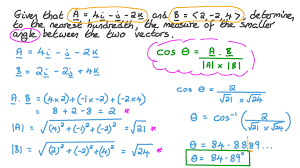 Given that A = 4i - j - 2k and B = <2, -2, 4>, determine,
to the nearest hundredth, the measure of the smaller
angle between the two vectors.
A = 4i - j - 2k
B = 2i - 2j + 4k
cos θ = A . B / |A| |B|
A . B = (4×2) + (-1×-2) + (-2×4)
= 8 + 2 - 8 = 2 *
|A| = √(4)² + (-1)² + (-2)² = √21 *
|B| = √(2)² + (-2)² + (4)² = √24 *
cos θ = 2 / √21 × √24
θ = cos⁻¹ (2 / √21 × √24)
θ = 84.8889...
θ = 84.89°